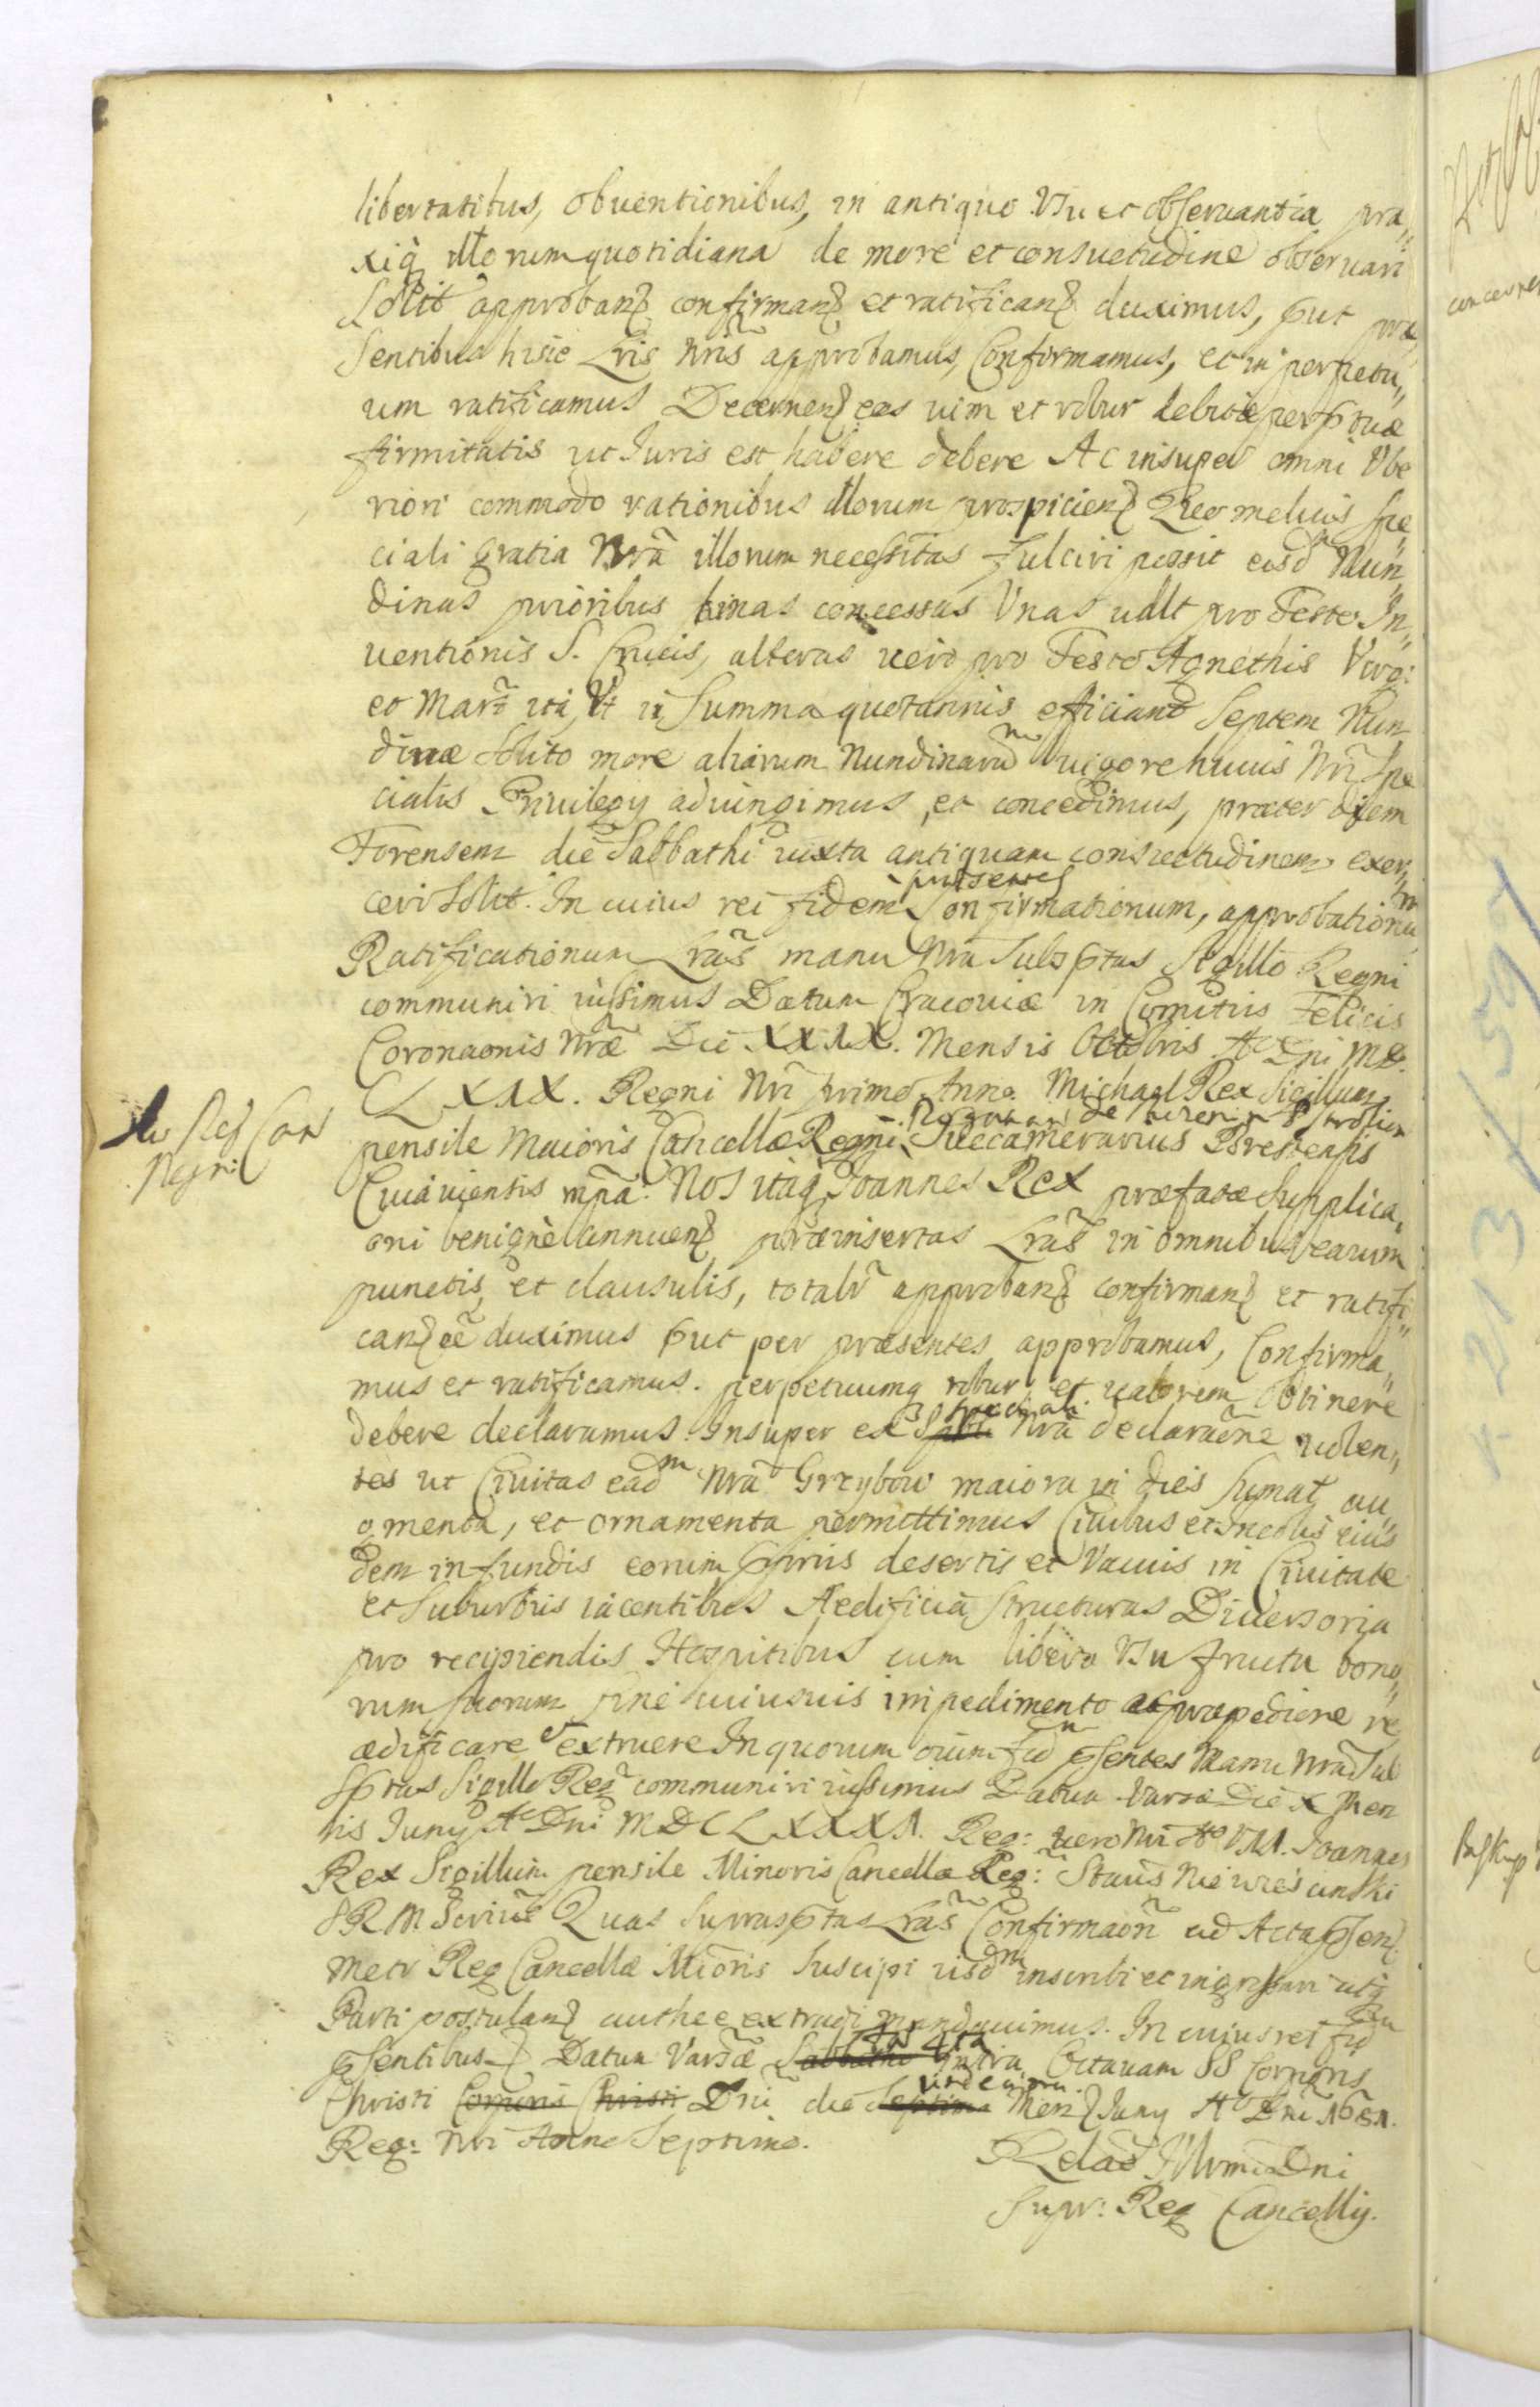 libertatibus, obuentionibus, in antiquo Vsu et obseruantia pra„
xiq̃ illorum quotidiana de more et consuetudine obseruari
Solit approbanꝫ confirmanꝫ et ratificanꝫ duximus, put præ„
sentibus hisce Lris Nris approbamus, Confirmamus, et in perpetu„
um ratificamus Decernenꝫ eas uim et robur debitæ perptuæ
firmitatis ut Iuris est habere debere Ac insuper omni Vbe
riori commodo rationibus illorum prospicienꝫ Quo melius Spe„
ciali gratia Nrã illorum necessitas fulciri possit eisd Nun„
dinas prioribus binas concessas Vnas uzlt pro Festo In„
uentionis S. Crucis, alteras uero pro Festo Agnethis Virg:
et Mart ita, Vt in Summa quotannis efficiant Septem Nun
dinæ Solito more aliarum Nundinarum uigore huius Nri Spe
cialis Priuilegy adiungimus, et concedimus, præter diem
Forensem die Sabbathi iuxta antiquam consuetudinem exer„
ceri Solit. In cuius rei fidem præsentes Confirmationum, approbationum
Ratificationum Lras manu Nra Subsptas Sigillo Regni
communiri iussimus Datum Cracouiæ in Comitiis Felicis
Coronaonis Nræ Die XXIX. Mensis Octobris Ao Dni MD.
CLXIX. Regni Nri primo Anno. Michael Rex Sigillum
pensile Maioris Cancellæ Regni. Succamerarius Brestensis
Cuiauiensis mpã. Nos itaq̃ Joannes Rex præfatæ Supplica„
oni benignè annuenꝫ præinsertas Lras in omnibus earum
punctis, et clausulis, totalr approbanꝫ confirmanꝫ et ratifi„
canꝫ eẽ duximus put per præsentes approbamus, Confirma„
mus et ratificamus. perpetuumq robur et ualorem obtinere
debere declaramus. Insuper ex speciali Nra declaraõne uolen„
tes ut Ciuitas eadm Nra Grzybow maiora in dies Sumat au„
gmenta, et ornamenta permittimus Ciuibus et Incolis eius
dem in fundis eorum ppriis desertis et Vacuis in Ciuitate
et Suburbiis iacentibus Aedificia, Structuras Diuersoria
pro recipiendis Hospitibus cum libero Vsu fructu bono„
rum suorum sine cuiusuis impedimento ac præpedione re
ædificare et extruere In quorum oium fidm psentes Manu Nra Sub
sptas Sigillo Reg communiri iussimus Datum Varsæ Die X Men
sis Juny Ao Dni MDCLXXXI. Reg: uero Nri Ao VII. Joannes
Rex Sigillum pensile Minoris Cancellæ Reg: Staus Niewiescinski
SRM Scrius Quas Suprasptas Lras Confirmaon ad Acta psenꝫ
Metr Reg Cancellæ Mioris Suscipi iisdm inscribi et ingrossari utq̃
Parti postulanꝫ authce extradi mandauimus. In cuius rei fidm
psentibus ꝫ Datum Varsæ Sabbatho Fia 4ta Intra Octauam SS Corporis
Christi Corporis Christi Dni die Septima undecima Menꝫ Juny Ao Dni 1681.
Reg: Nri Anno Septimo.
Relao Illrmi Dni
Supr: Reg Cancellry.